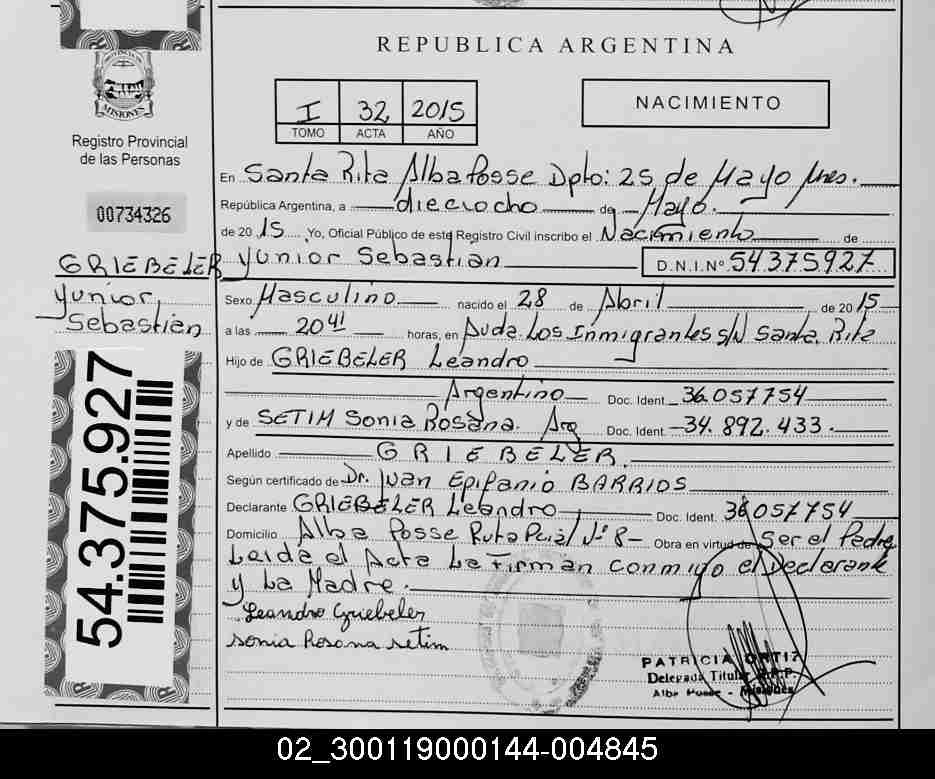 REPUBLICA ARGENTINA
PROVINCIA
MISIONES
Registro Provincial
de las Personas
00734326
I 32 2015
TOMO ACTA AÑO
NACIMIENTO
En Santa Rita Alba Posse Dpto: 25 de Mayo Mnes.
República Argentina, a dieciocho de Mayo.
de 2015. Yo, Oficial Público de este Registro Civil inscribo el Nacimiento de
GRIEBELER Yunior Sebastian D.N.I.Nº 54375927
Yunior
Sebastian
54.375.927
Sexo Masculino nacido el 28 de Abril de 2015
a las 20 41 horas, en Avda. Los Inmigrantes s/N Santa Rita
Hijo de GRIEBELER Leandro
Argentino Doc. Ident. 36.057754
y de SETIM Sonia Rosana. Arg Doc. Ident. 34.892.433.
Apellido GRIEBELER.
Según certificado de Dr. Juan Epifanio BARRIOS
Declarante GRIEBELER Leandro Doc. Ident. 36057754
Domicilio Alba Posse Ruta Pcial Nº 8- Obra en virtud de Ser el Padre
Leida el Acta La Firman conmigo el Declarante
y La Madre.
Leandro Griebeler
sonia Rosana setim
PATRICIA ORTIZ
Delegada Titular R.P.P.
Alba Posse - Misiones
02_300119000144-004845